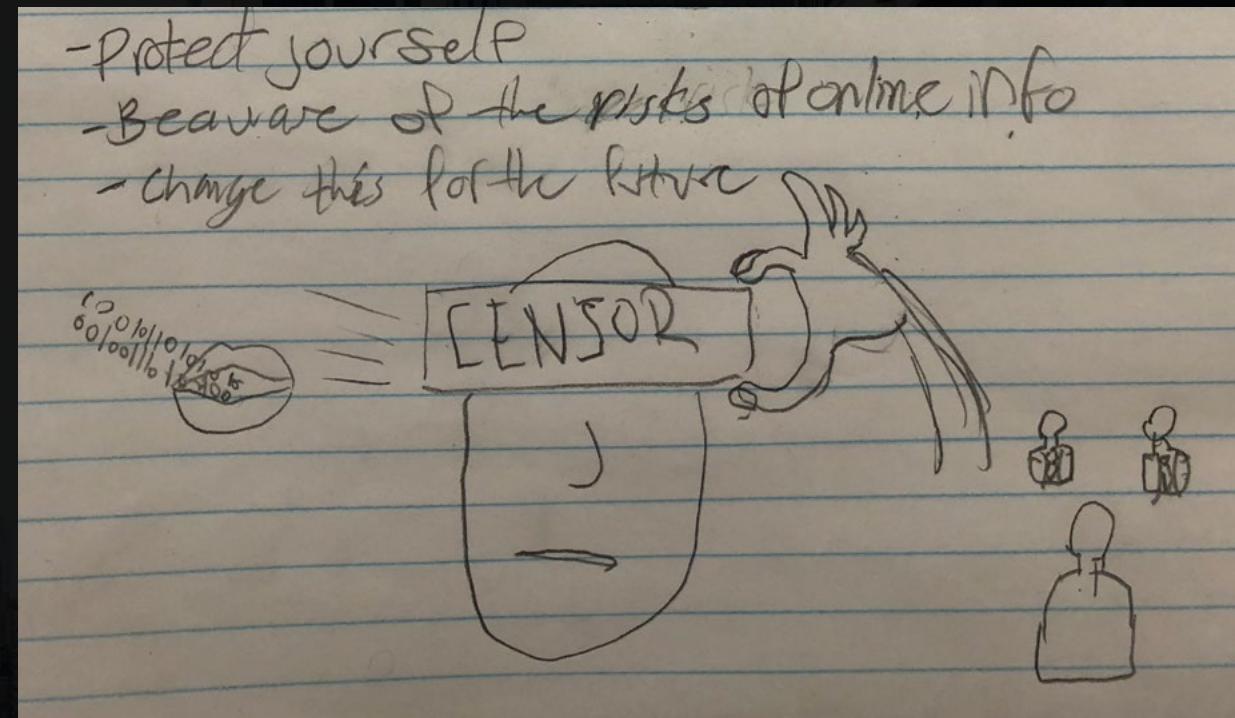 - Protect yourself
- Beaware of the risks of online info
- Change this for the future
CENSOR